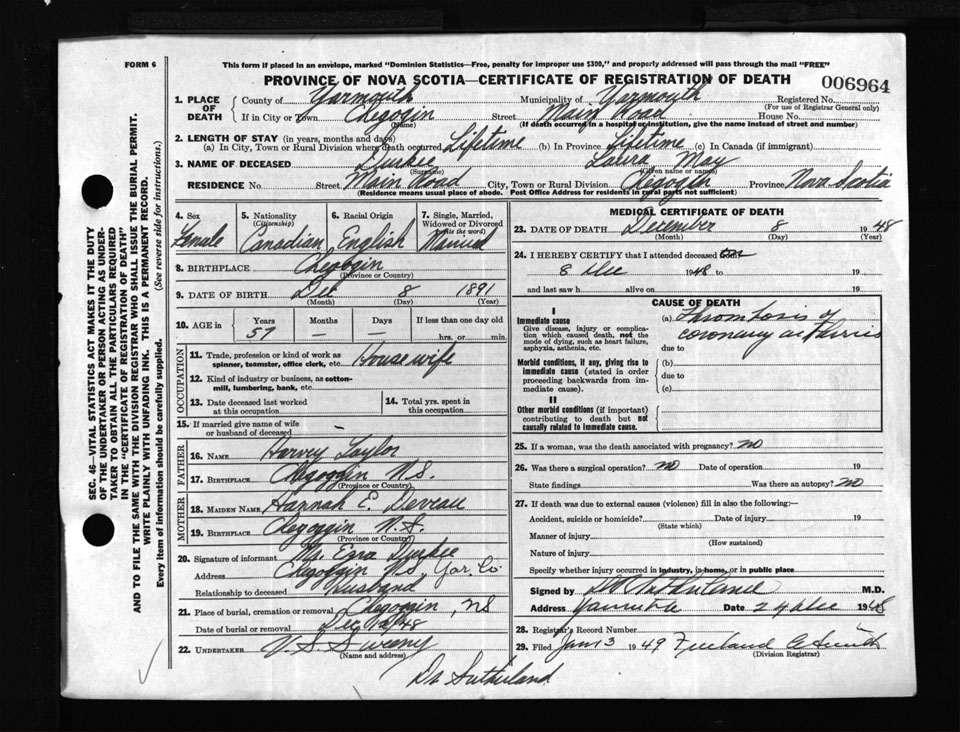 FORM 6
This form if placed in an envelope, marked "Dominion Statistics—Free, penalty for improper use $300," and properly addressed will pass through the mail "FREE"
PROVINCE OF NOVA SCOTIA—CERTIFICATE OF REGISTRATION OF DEATH
006964
1. PLACE OF DEATH { County of Yarmouth Municipality of Yarmouth Registered No.
(For use of Registrar General only)
If in City or Town Chegogin Street Main Road House No.
(Name) (If death occurred in a hospital or institution, give the name instead of street and number)
2. LENGTH OF STAY (in years, months and days)
(a) In City, Town or Rural Division where death occurred Lifetime (b) In Province Lifetime (c) In Canada (if immigrant)
3. NAME OF DECEASED Durkee Laura May
(Surname) (Given name or names)
RESIDENCE No. Street Main Road City, Town or Rural Division Chegogin Province Nova Scotia
(Residence means usual place of abode. Post Office Address for residents in rural parts not sufficient)
4. Sex Female
5. Nationality (Citizenship) Canadian
6. Racial Origin English
7. Single, Married, Widowed or Divorced (Write the word) Married
8. BIRTHPLACE Chegogin
(Province or Country)
9. DATE OF BIRTH Dec 8 1891
(Month) (Day) (Year)
10. AGE in { Years 57 Months — Days — If less than one day old
hrs. or min.
OCCUPATION
11. Trade, profession or kind of work as spinner, teamster, office clerk, etc. Housewife
12. Kind of industry or business, as cotton-mill, lumbering, bank, etc.
13. Date deceased last worked at this occupation
14. Total yrs. spent in this occupation
15. If married give name of wife or husband of deceased —
FATHER
16. NAME Harvey Taylor
17. BIRTHPLACE Chegoggin N.S.
(Province or Country)
MOTHER
18. MAIDEN NAME Hannah E. Deveau
19. BIRTHPLACE Chegoggin N.S.
(Province or Country)
20. Signature of informant Mr. Ezra Durkee
Address Chegoggin N.S. Yar. Co.
Relationship to deceased Husband
21. Place of burial, cremation or removal Chegoggin, NS
Date of burial or removal Dec 48
22. UNDERTAKER V. S. Sweeny
(Name and address)
MEDICAL CERTIFICATE OF DEATH
23. DATE OF DEATH December 8 1948
(Month) (Day) (Year)
24. I HEREBY CERTIFY that I attended deceased
8 Dec 1948 to 19
and last saw h alive on 19
CAUSE OF DEATH
I
Immediate cause
Give disease, injury or complication which caused death, not the mode of dying, such as heart failure, asphyxia, asthenia, etc.
(a) Thrombosis of
coronary arteries
due to
Morbid conditions, if any, giving rise to immediate cause (stated in order proceeding backwards from immediate cause).
(b)
due to
(c)
II
Other morbid conditions (if important) contributing to death but not causally related to immediate cause.
25. If a woman, was the death associated with pregnancy? no
26. Was there a surgical operation? no Date of operation 19
State findings Was there an autopsy? no
27. If death was due to external causes (violence) fill in also the following:—
Accident, suicide or homicide? Date of injury 19
(State which)
Manner of injury
(How sustained)
Nature of injury
Specify whether injury occurred in industry, in home, or in public place
Signed by Sutherland M.D.
Address Yarmouth Date 24 Dec 1948
28. Registrar's Record Number
29. Filed Jan 3 1949 Freeland
(Division Registrar)
Dr Sutherland
SEC. 46—VITAL STATISTICS ACT MAKES IT THE DUTY
OF THE UNDERTAKER OR PERSON ACTING AS UNDER-
TAKER TO OBTAIN ALL THE PARTICULARS REQUIRED
IN THE "CERTIFICATE OF REGISTRATION OF DEATH"
AND TO FILE THE SAME WITH THE DIVISION REGISTRAR WHO SHALL ISSUE THE BURIAL PERMIT.
WRITE PLAINLY WITH UNFADING INK. THIS IS A PERMANENT RECORD.
Every item of information should be carefully supplied. (See reverse side for instructions.)